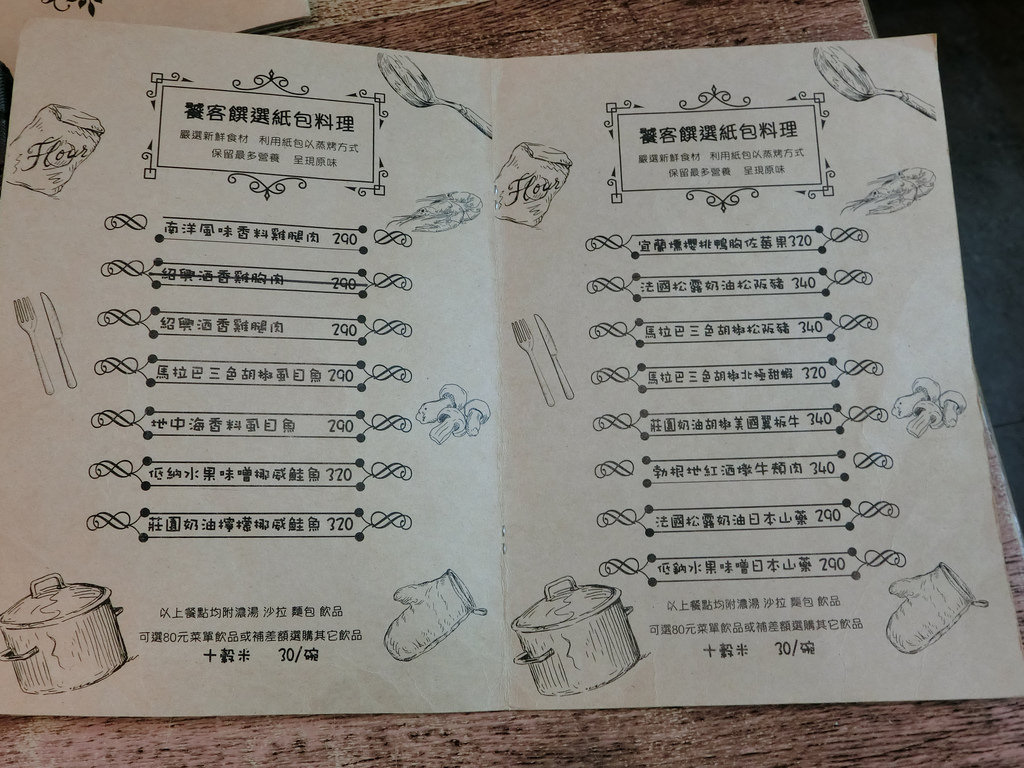 Flour
饕客饌選紙包料理
嚴選新鮮食材 利用紙包以蒸烤方式
保留最多營養 呈現原味
南洋風味香料雞腿肉 290
紹興酒香雞胸肉 290
紹興酒香雞腿肉 290
馬拉巴三色胡椒虱目魚 290
地中海香料虱目魚 290
低納水果味噌挪威鮭魚 320
莊園奶油檸檬挪威鮭魚 320
以上餐點均附濃湯 沙拉 麵包 飲品
可選80元菜單飲品或補差額選購其它飲品
十穀米 30/碗
Flour
饕客饌選紙包料理
嚴選新鮮食材 利用紙包以蒸烤方式
保留最多營養 呈現原味
宜蘭燻櫻桃鴨胸佐莓果320
法國松露奶油松阪豬 340
馬拉巴三色胡椒松阪豬 340
馬拉巴三色胡椒北極甜蝦 320
莊園奶油胡椒美國翼板牛 340
勃根地紅酒燉牛頰肉 340
法國松露奶油日本山藥 290
低納水果味噌日本山藥 290
以上餐點均附濃湯 沙拉 麵包 飲品
可選80元菜單飲品或補差額選購其它飲品
十穀米 30/碗